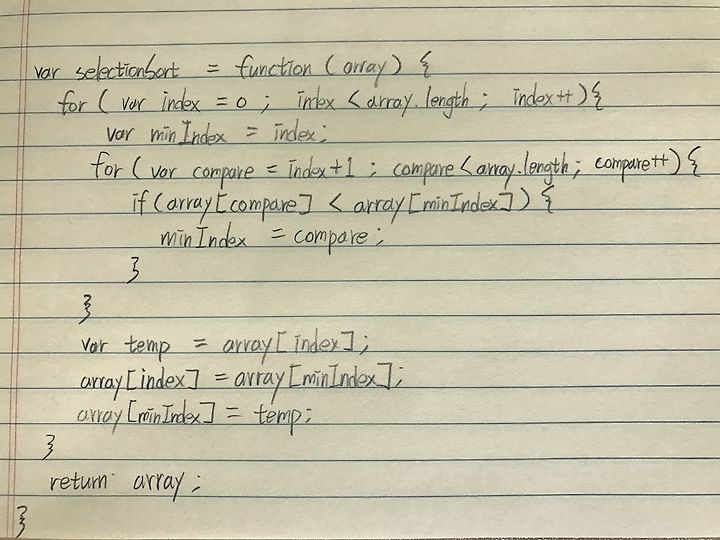 var selectionSort = function (array) {
for ( var index = 0 ; index < array.length ; index++){
var minIndex = index;
for ( var compare = index+1 ; compare < array.length; compare++) {
if (array[compare] < array[minIndex]) {
minIndex = compare;
}
}
var temp = array[index];
array[index] = array[minIndex];
array[minIndex] = temp;
}
return array;
}